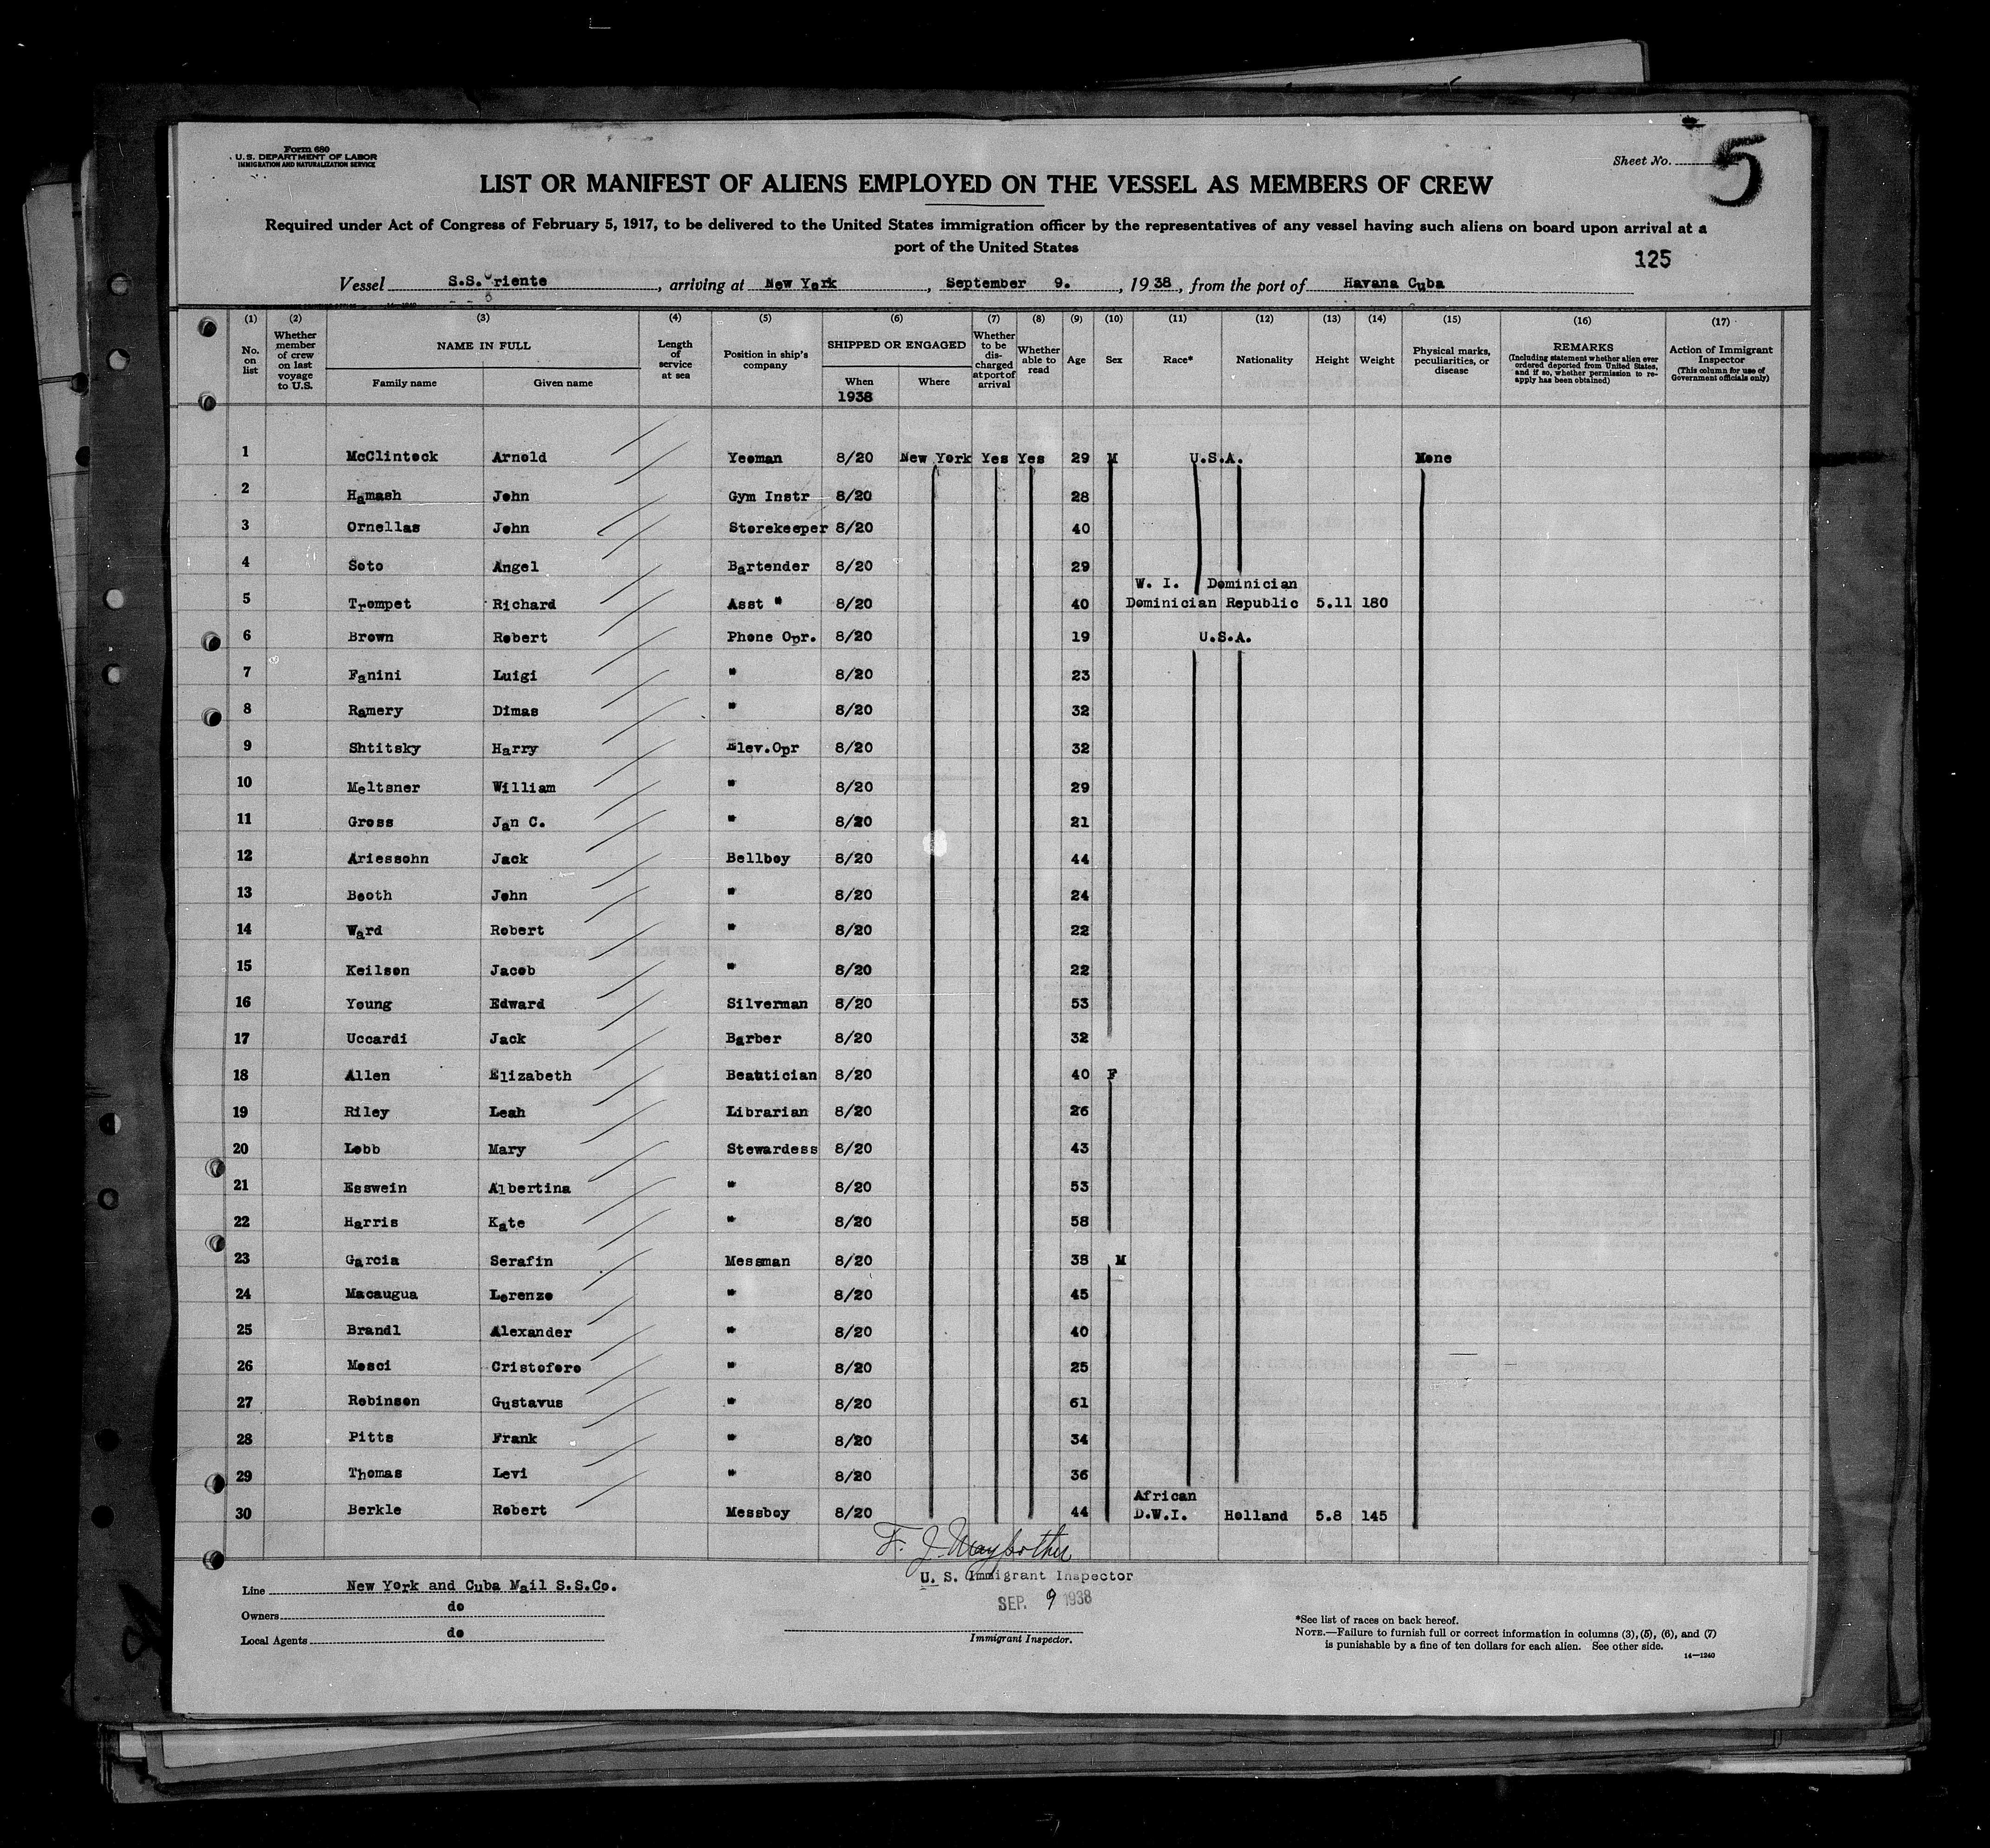 Form 680
U.S. DEPARTMENT OF LABOR
IMMIGRATION AND NATURALIZATION SERVICE
Sheet No. 5
LIST OR MANIFEST OF ALIENS EMPLOYED ON THE VESSEL AS MEMBERS OF CREW
Required under Act of Congress of February 5, 1917, to be delivered to the United States immigration officer by the representatives of any vessel having such aliens on board upon arrival at a
port of the United States
125
Vessel S.S. Oriente, arriving at New York, September 9., 1938, from the port of Havana Cuba
(1) (2) (3) (4) (5) (6) (7) (8) (9) (10) (11) (12) (13) (14) (15) (16) (17)
No. on list
Whether member of crew on last voyage to U.S.
NAME IN FULL
Family name Given name
Length of service at sea
Position in ship's company
SHIPPED OR ENGAGED
When Where
1938
Whether to be discharged at port of arrival
Whether able to read
Age Sex Race* Nationality Height Weight
Physical marks, peculiarities, or disease
REMARKS
(Including statement whether alien ever ordered deported from United States, and if so, whether permission to re-apply has been obtained)
Action of Immigrant Inspector
(This column for use of Government officials only)
1 McClintock Arnold Yeoman 8/20 New York Yes Yes 29 M U.S.A. None
2 Hamash John Gym Instr 8/20 28
3 Ornellas John Storekeeper 8/20 40
4 Soto Angel Bartender 8/20 29
W. I. Dominician
5 Trompet Richard Asst " 8/20 40 Dominician Republic 5.11 180
6 Brown Robert Phone Opr. 8/20 19 U.S.A.
7 Fanini Luigi " 8/20 23
8 Ramery Dimas " 8/20 32
9 Shtitsky Harry Elev.Opr 8/20 32
10 Meltsner William " 8/20 29
11 Gross Jan C. " 8/20 21
12 Ariessohn Jack Bellboy 8/20 44
13 Booth John " 8/20 24
14 Ward Robert " 8/20 22
15 Keilson Jacob " 8/20 22
16 Young Edward Silverman 8/20 53
17 Uccardi Jack Barber 8/20 32
18 Allen Elizabeth Beautician 8/20 40 F
19 Riley Leah Librarian 8/20 26
20 Lobb Mary Stewardess 8/20 43
21 Esswein Albertina " 8/20 53
22 Harris Kate " 8/20 58
23 Garcia Serafin Messman 8/20 38 M
24 Macaugua Lorenzo " 8/20 45
25 Brandl Alexander " 8/20 40
26 Mosci Cristofero " 8/20 25
27 Robinson Gustavus " 8/20 61
28 Pitts Frank " 8/20 34
29 Thomas Levi " 8/20 36
African
30 Berkle Robert Messboy 8/20 44 D.W.I. Holland 5.8 145
F. J. Mayforther
U. S. Immigrant Inspector
SEP. 9 1938
Immigrant Inspector.
Line New York and Cuba Mail S.S.Co.
Owners do
Local Agents do
*See list of races on back hereof.
NOTE.—Failure to furnish full or correct information in columns (3), (5), (6), and (7)
is punishable by a fine of ten dollars for each alien. See other side.
14—1240